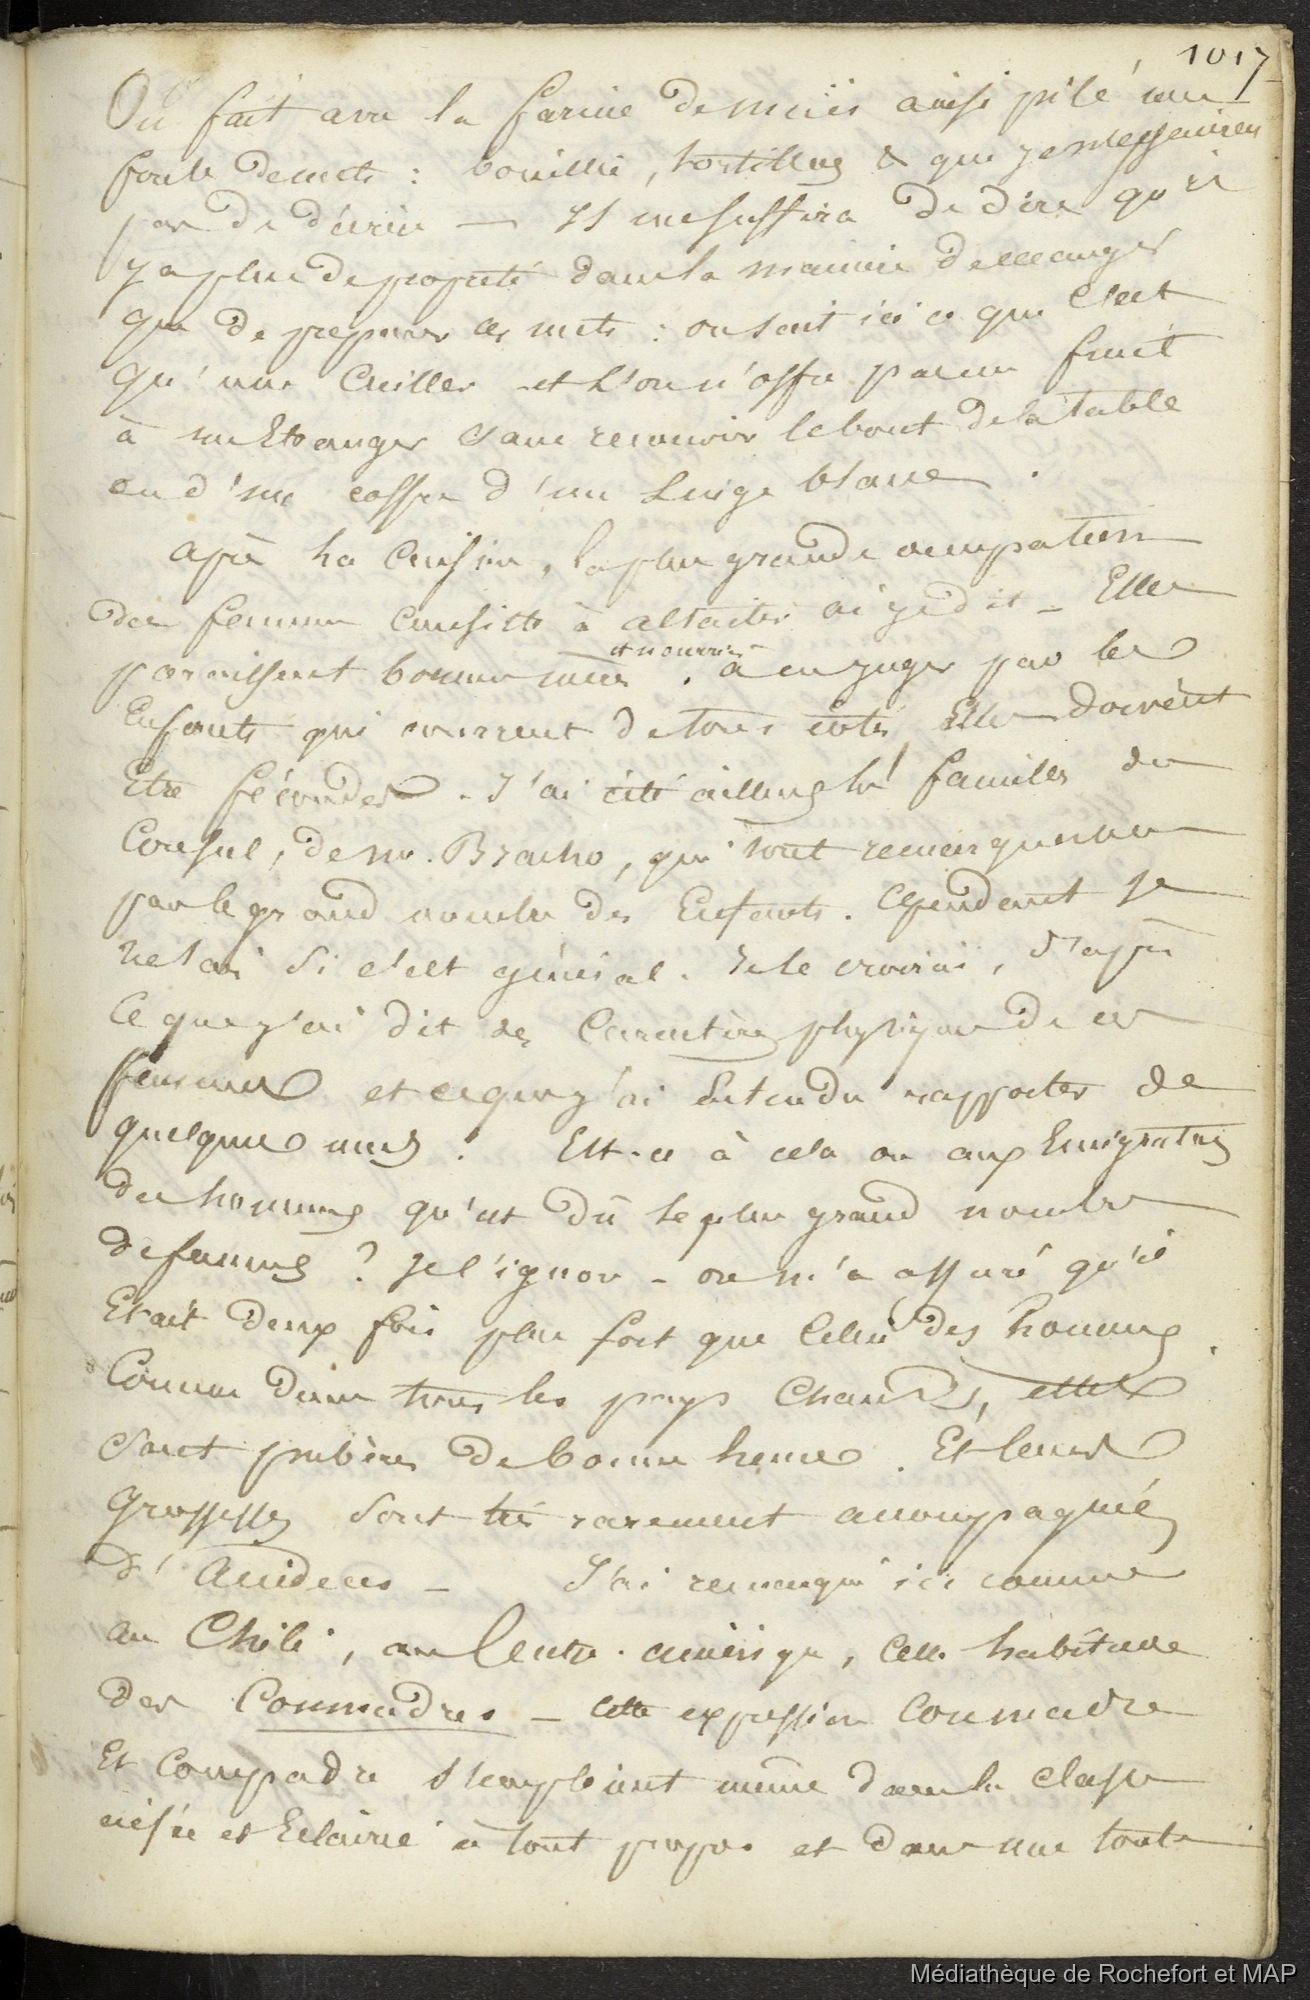 1017
On fait avec la farine de maïs ainsi pilé une
foule de mets : bouillie, tortillas & que je n'essaierai
pas de décrire — Il me suffira de dire qu'il
y a plus de propreté dans la manière de manger
que de préparer ces mets : on sait ici ce que c'est
qu'une cuiller et l'on n'offre pas un fruit
à un Etranger sans recouvrir le bout de la table
ou d'un coffre d'un linge blanc.
après la cuisine, la plus grande occupation
des femmes consiste à allaiter ai je dit - Elles
et nourrices
paraissent bonnes mères . à en juger par les
Enfants qui courrent de tous côtés Elles doivent
Etre fécondes . J'ai cité ailleurs les familles du
Consul, de mr. Bracho, qui sont remarquables
par le grand nombre des Enfants. Cependant je
ne sais si c'est général. Je le croirai, d'après
ce que j'ai dit des Caractères physiques de ces
femmes et ce que j'ai Entendu rapporter de
quelques unes . Est-ce à cela ou aux Emigrations
des hommes qu'est dû le plus grand nombre
de femmes ? Je l'ignore - on m'a assuré qu'il
Etait deux fois plus fort que Celui des hommes.
Comme dans tous les pays Chauds, elles
sont pubères de bonne heure . Et leurs
Grossesses sont très rarement accompagnées
d'accidens — J'ai remarqué ici comme
au Chili, au Centre-amérique, cette habitude
des Commadres — cette expression Commadre
Et Compadre s'emploient même dans la classe
aisée et Eclairée à tout propos et dans une toute
Médiathèque de Rochefort et MAP